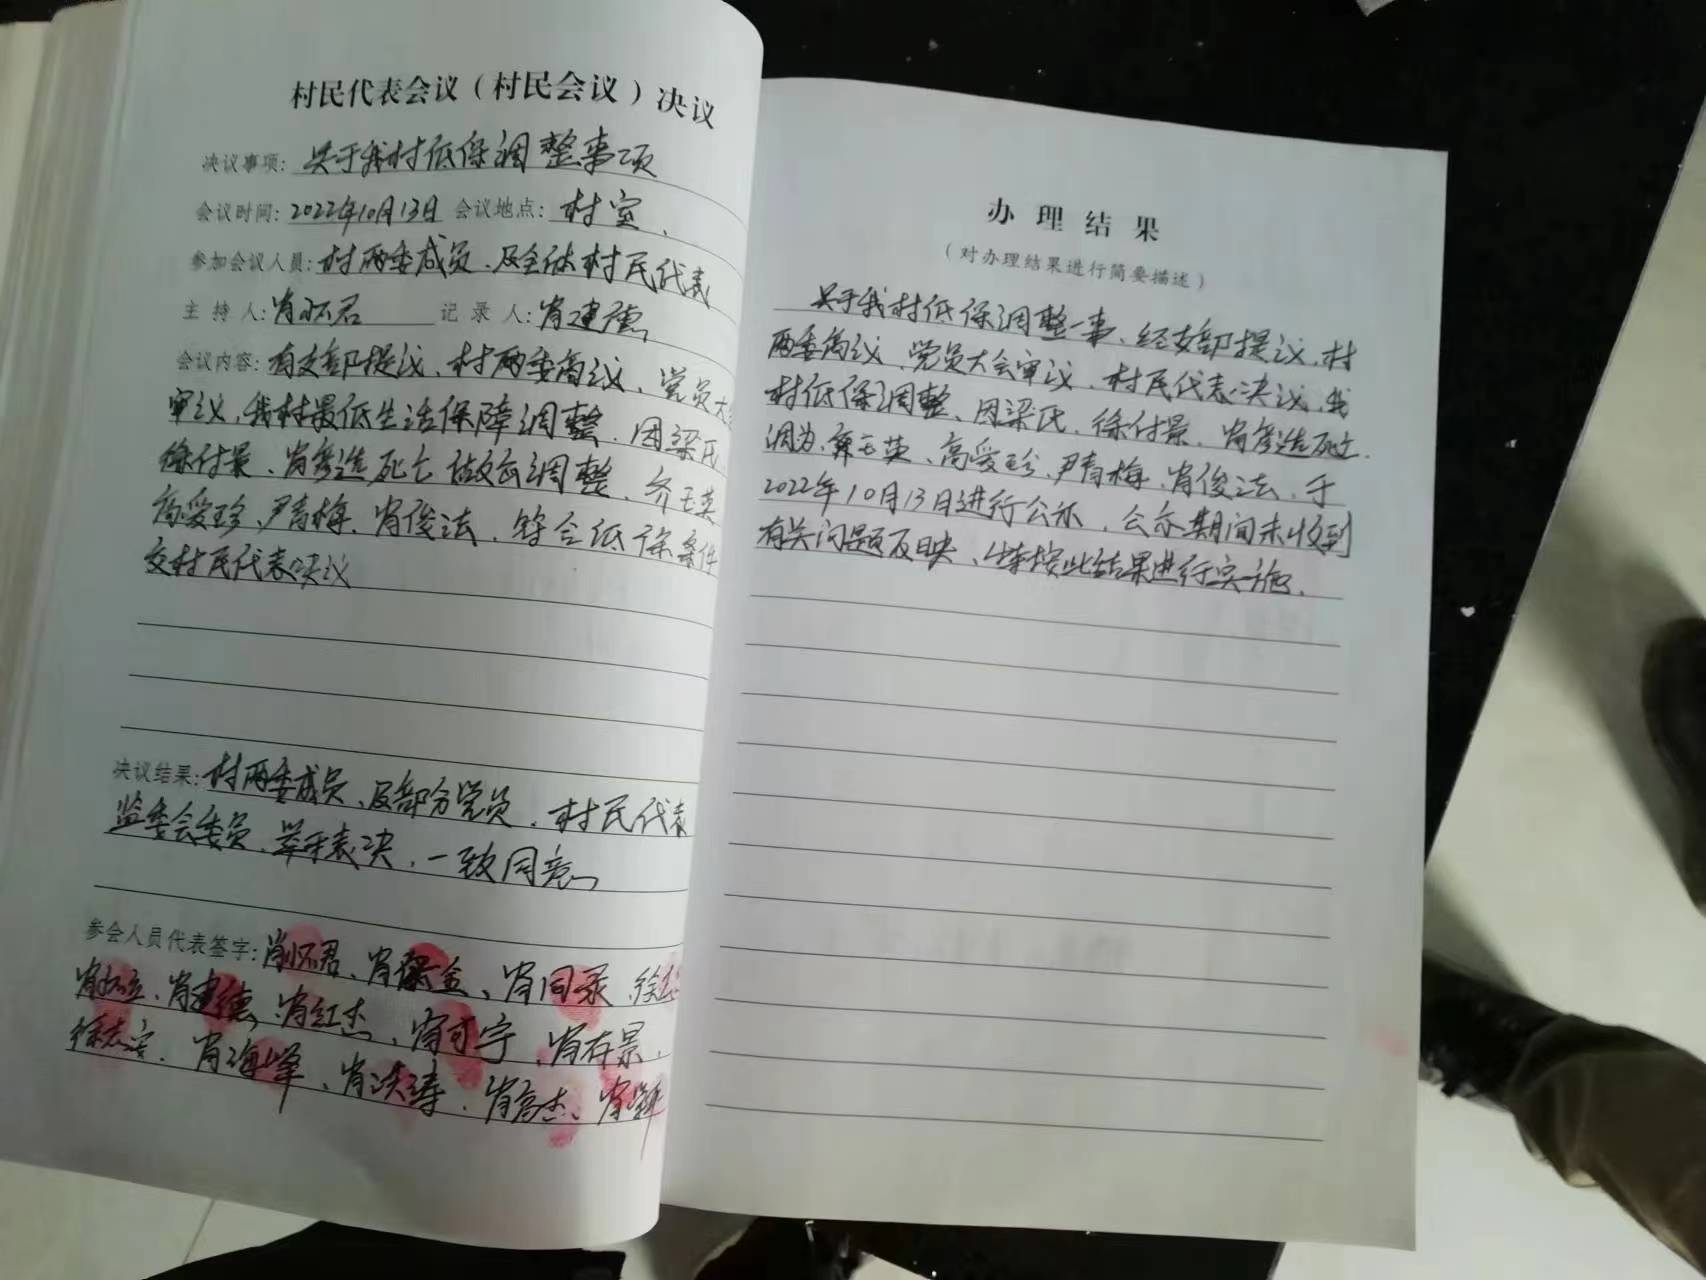 村民代表会议（村民会议）决议
决议事项：关于我村低保调整事项
会议时间：2022年10月13日 会议地点：村室.
参加会议人员：村两委成员、及全体村民代表
主持人：肖怀君 记录人：肖建德
会议内容：有支部提议、村两委商议、党员大会
审议、我村最低生活保障调整、因梁氏
徐付景、肖 选死亡 调整、齐玉英
高爱珍、尹青梅、肖俊法、符合低保条件
交村民代表决议
决议结果：村两委成员、及部分党员、村民代表
监委会委员、举手表决、一致同意
参会人员代表签字：肖怀君、肖 金、肖同录 徐
肖 、肖建德、肖红杰、肖可宁、肖存景、
徐志安、肖海峰、肖洪涛、肖高杰、肖
办理结果
（对办理结果进行简要描述）
关于我村低保调整一事、经支部提议、村
两委商议、党员大会审议、村民代表决议、我
村低保调整、因梁氏、徐付景、肖 选死亡.
调为、齐玉英、高爱珍、尹青梅、肖俊法、于
2022年10月13日进行公示、公示期间未收到
有关问题反映、 按此结果进行实施.